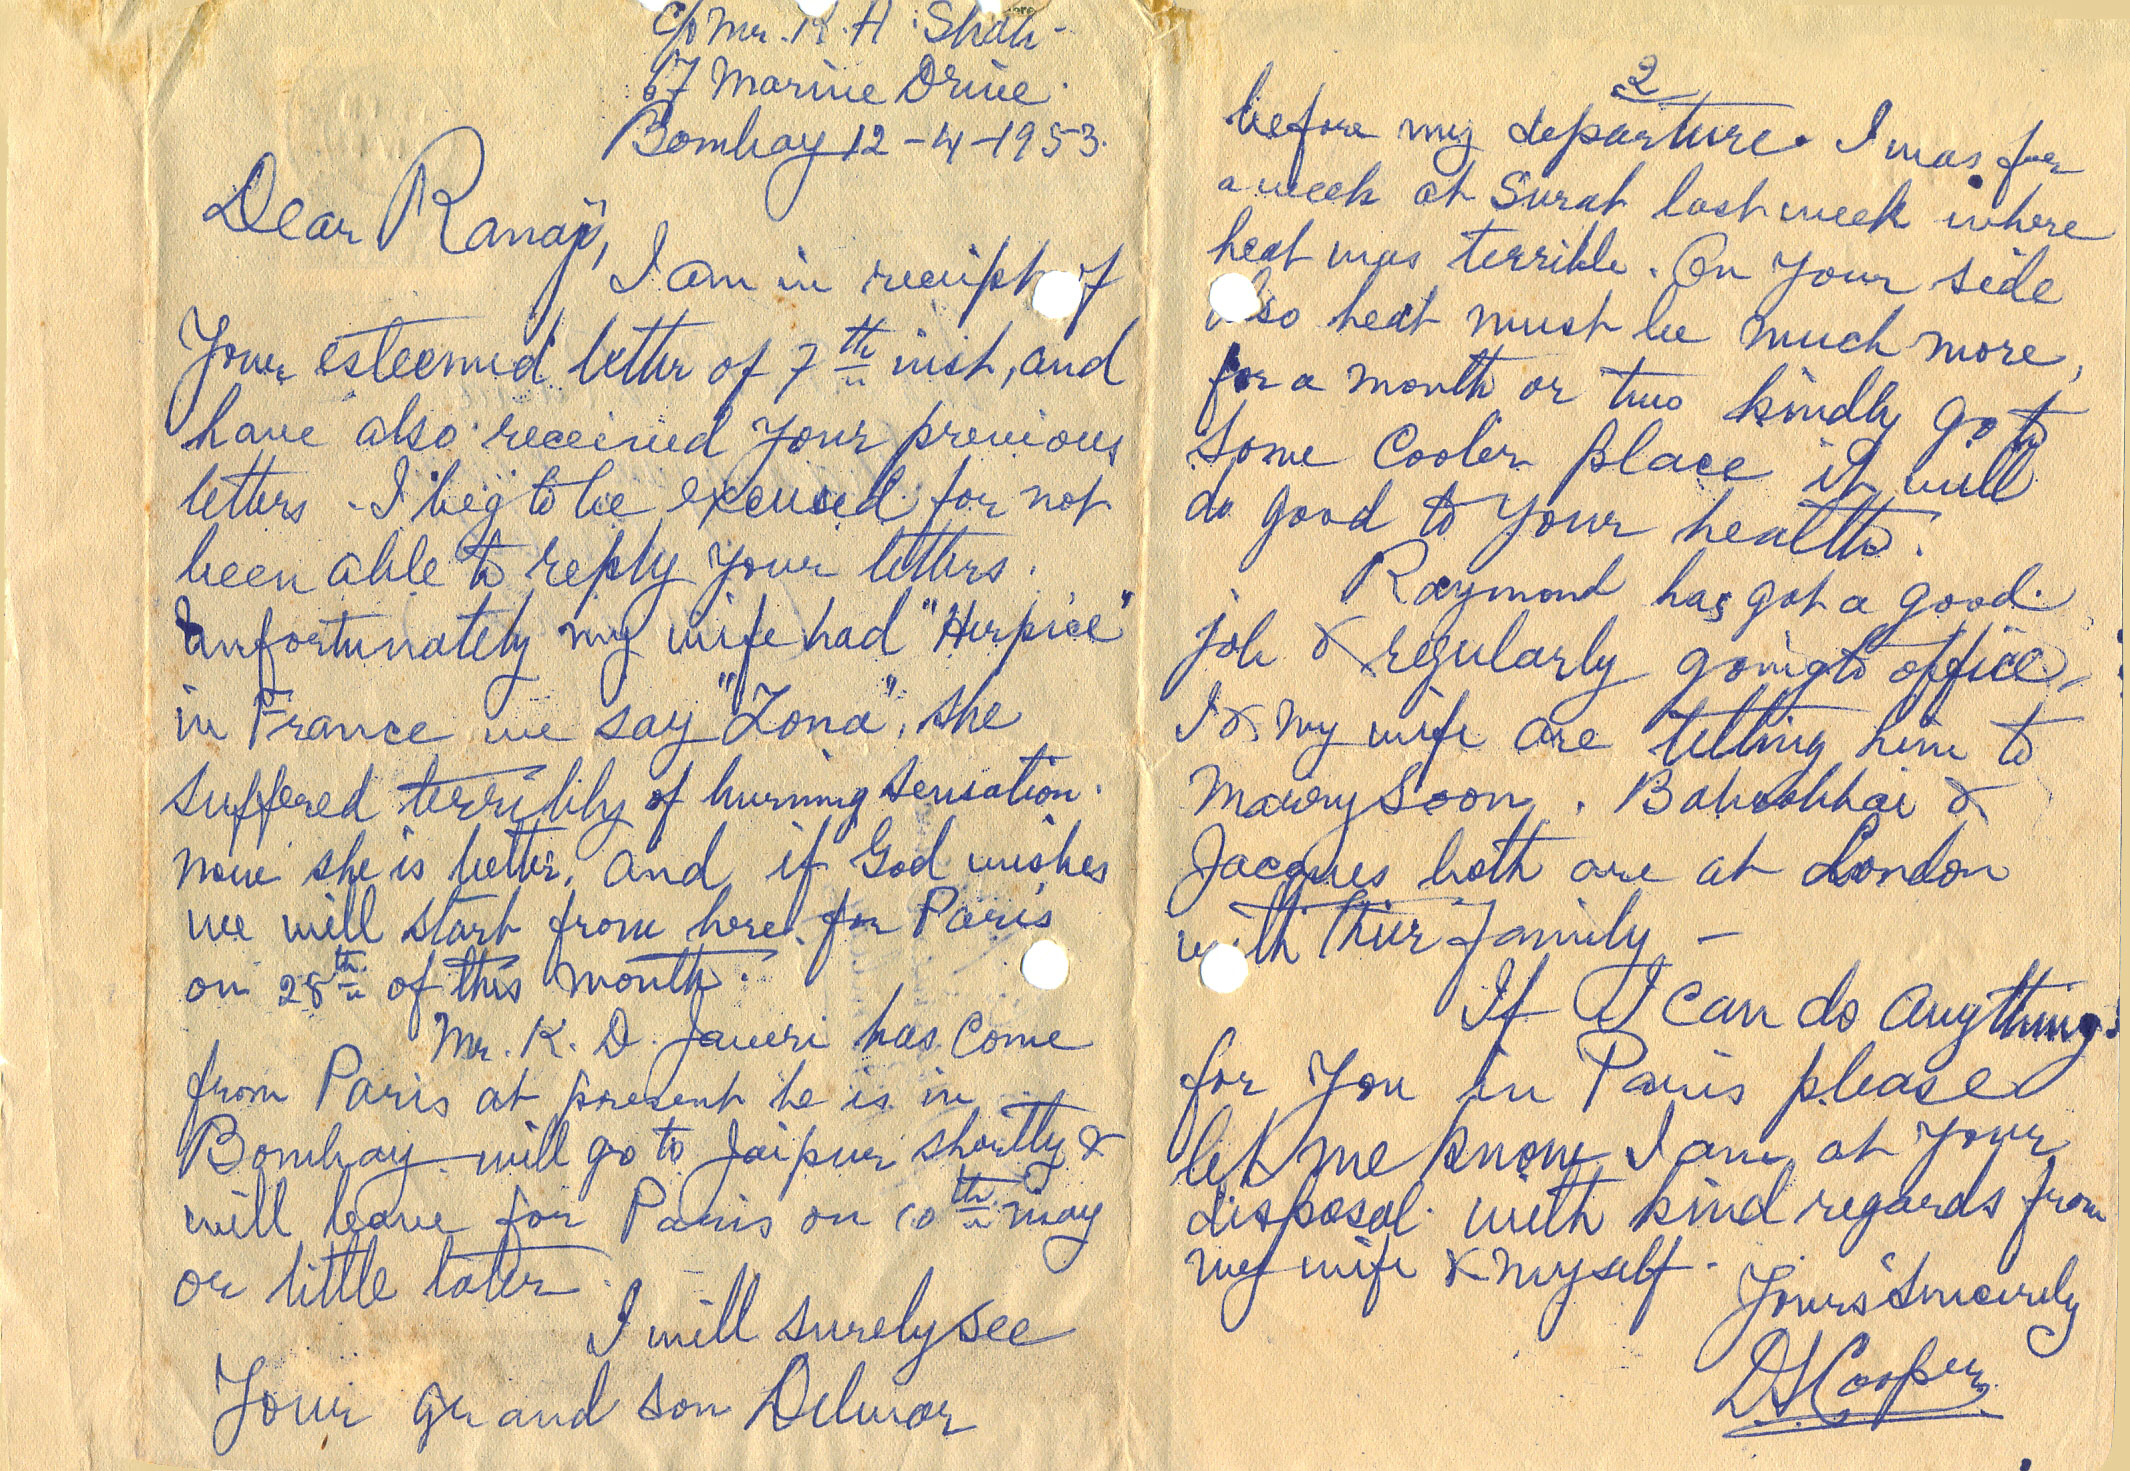 c/o Mr. K. A. Shah
67 Marine Drive
Bombay 12-4-1953.
Dear Ranaji,
I am in recipt of
Your esteemed letter of 7th inst, and
have also received your previous
letters. I beg to be excused for not
been able to reply your letters.
Unfortunately my wife had "Herpice"
in France we say "Zona", she
suffered terribily of burning sensation.
now she is better, and if God wishes
we will start from here for Paris
on 28th of this month.
Mr. K. D. Javeri has come
from Paris at present he is in
Bombay will go to Jaipur shortly &
will leave for Paris on 10th may
or little later.
I will surely see
Your grand son Delwar
2
before my departure. I was for
a week at Surat last week where
heat was terrible. On your side
also heat must be much more,
for a month or two kindly go to
some cooler place it will
do good to your health.
Raymond has got a good
job & regularly going to office,
I & my wife are telling him to
marry soon. Babubhai &
Jacques both are at London
with thier family -
If I can do anything
for you in Paris please
let me know I am at your
disposal. with kind regards from
my wife & myself.
Yours sincerely
DS Cooper